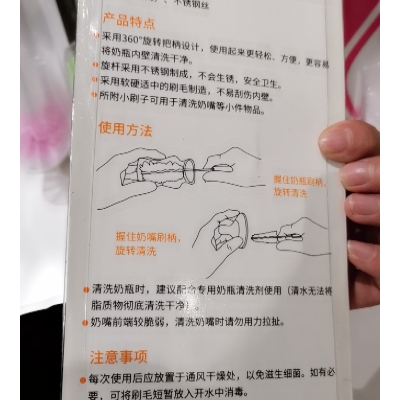 、不锈钢丝
产品特点
采用360°旋转把柄设计，使用起来更轻松、方便，更容易
将奶瓶内壁清洗干净。
旋杆采用不锈钢制成，不会生锈，安全卫生。
采用软硬适中的刷毛制造，不易刮伤内壁。
所附小刷子可用于清洗奶嘴等小件物品。
使用方法
握住奶瓶刷柄，
旋转清洗
握住奶嘴刷柄，
旋转清洗
清洗奶瓶时，建议配合专用奶瓶清洗剂使用（清水无法将
脂质物彻底清洗干净）。
奶嘴前端较脆弱，清洗奶嘴时请勿用力拉扯。
注意事项
每次使用后应放置于通风干燥处，以免滋生细菌。如有必
要，可将刷毛短暂放入开水中消毒。